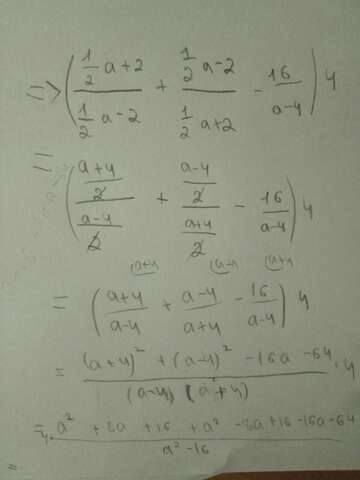 => ( (1/2 a+2)/(1/2 a-2) + (1/2 a-2)/(1/2 a+2) - 16/(a-4) ) 4
= ( ((a+4)/2)/((a-4)/2) + ((a-4)/2)/((a+4)/2) - 16/(a-4) ) 4
(a+4 (a-4 (a+4
= ( (a+4)/(a-4) + (a-4)/(a+4) - 16/(a-4) ) 4
= ((a+4)² + (a-4)² - 16a - 64)/((a-4)(a+4)) · 4
= 4. (a² + 8a + 16 + a² - 8a + 16 - 16a - 64)/(a² - 16)
=